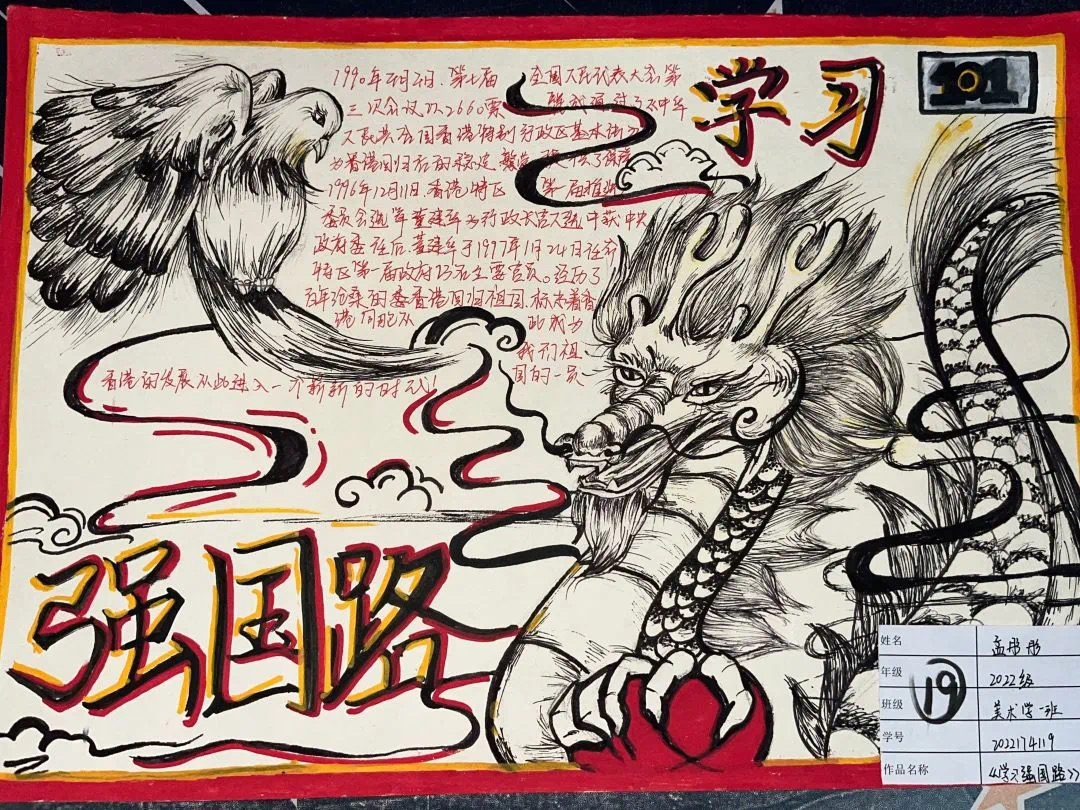 学习
101
1990年4月4日.第七届 全国人民代表大会第
三次会议以2660票
人民共和国香港特别行政区基本法
为香港回归后的稳定 繁荣
1996年12月11日.香港特区 第一届推
委员会选举董建华为行政长官人选中获中央
政府委任后.董建华于1997年1月24日任命
特区第一届政府23名主要官员。经历了
百年沧桑的 香港回归祖国.标志着香
港同胞从 此成为
我们祖
国的一员
香港的发展从此进入一个新新的时代!
强国路
姓名 孟彤彤
年级 2022级
19
班级 美术学一班
学号 2022174119
作品名称 《学习强国路》